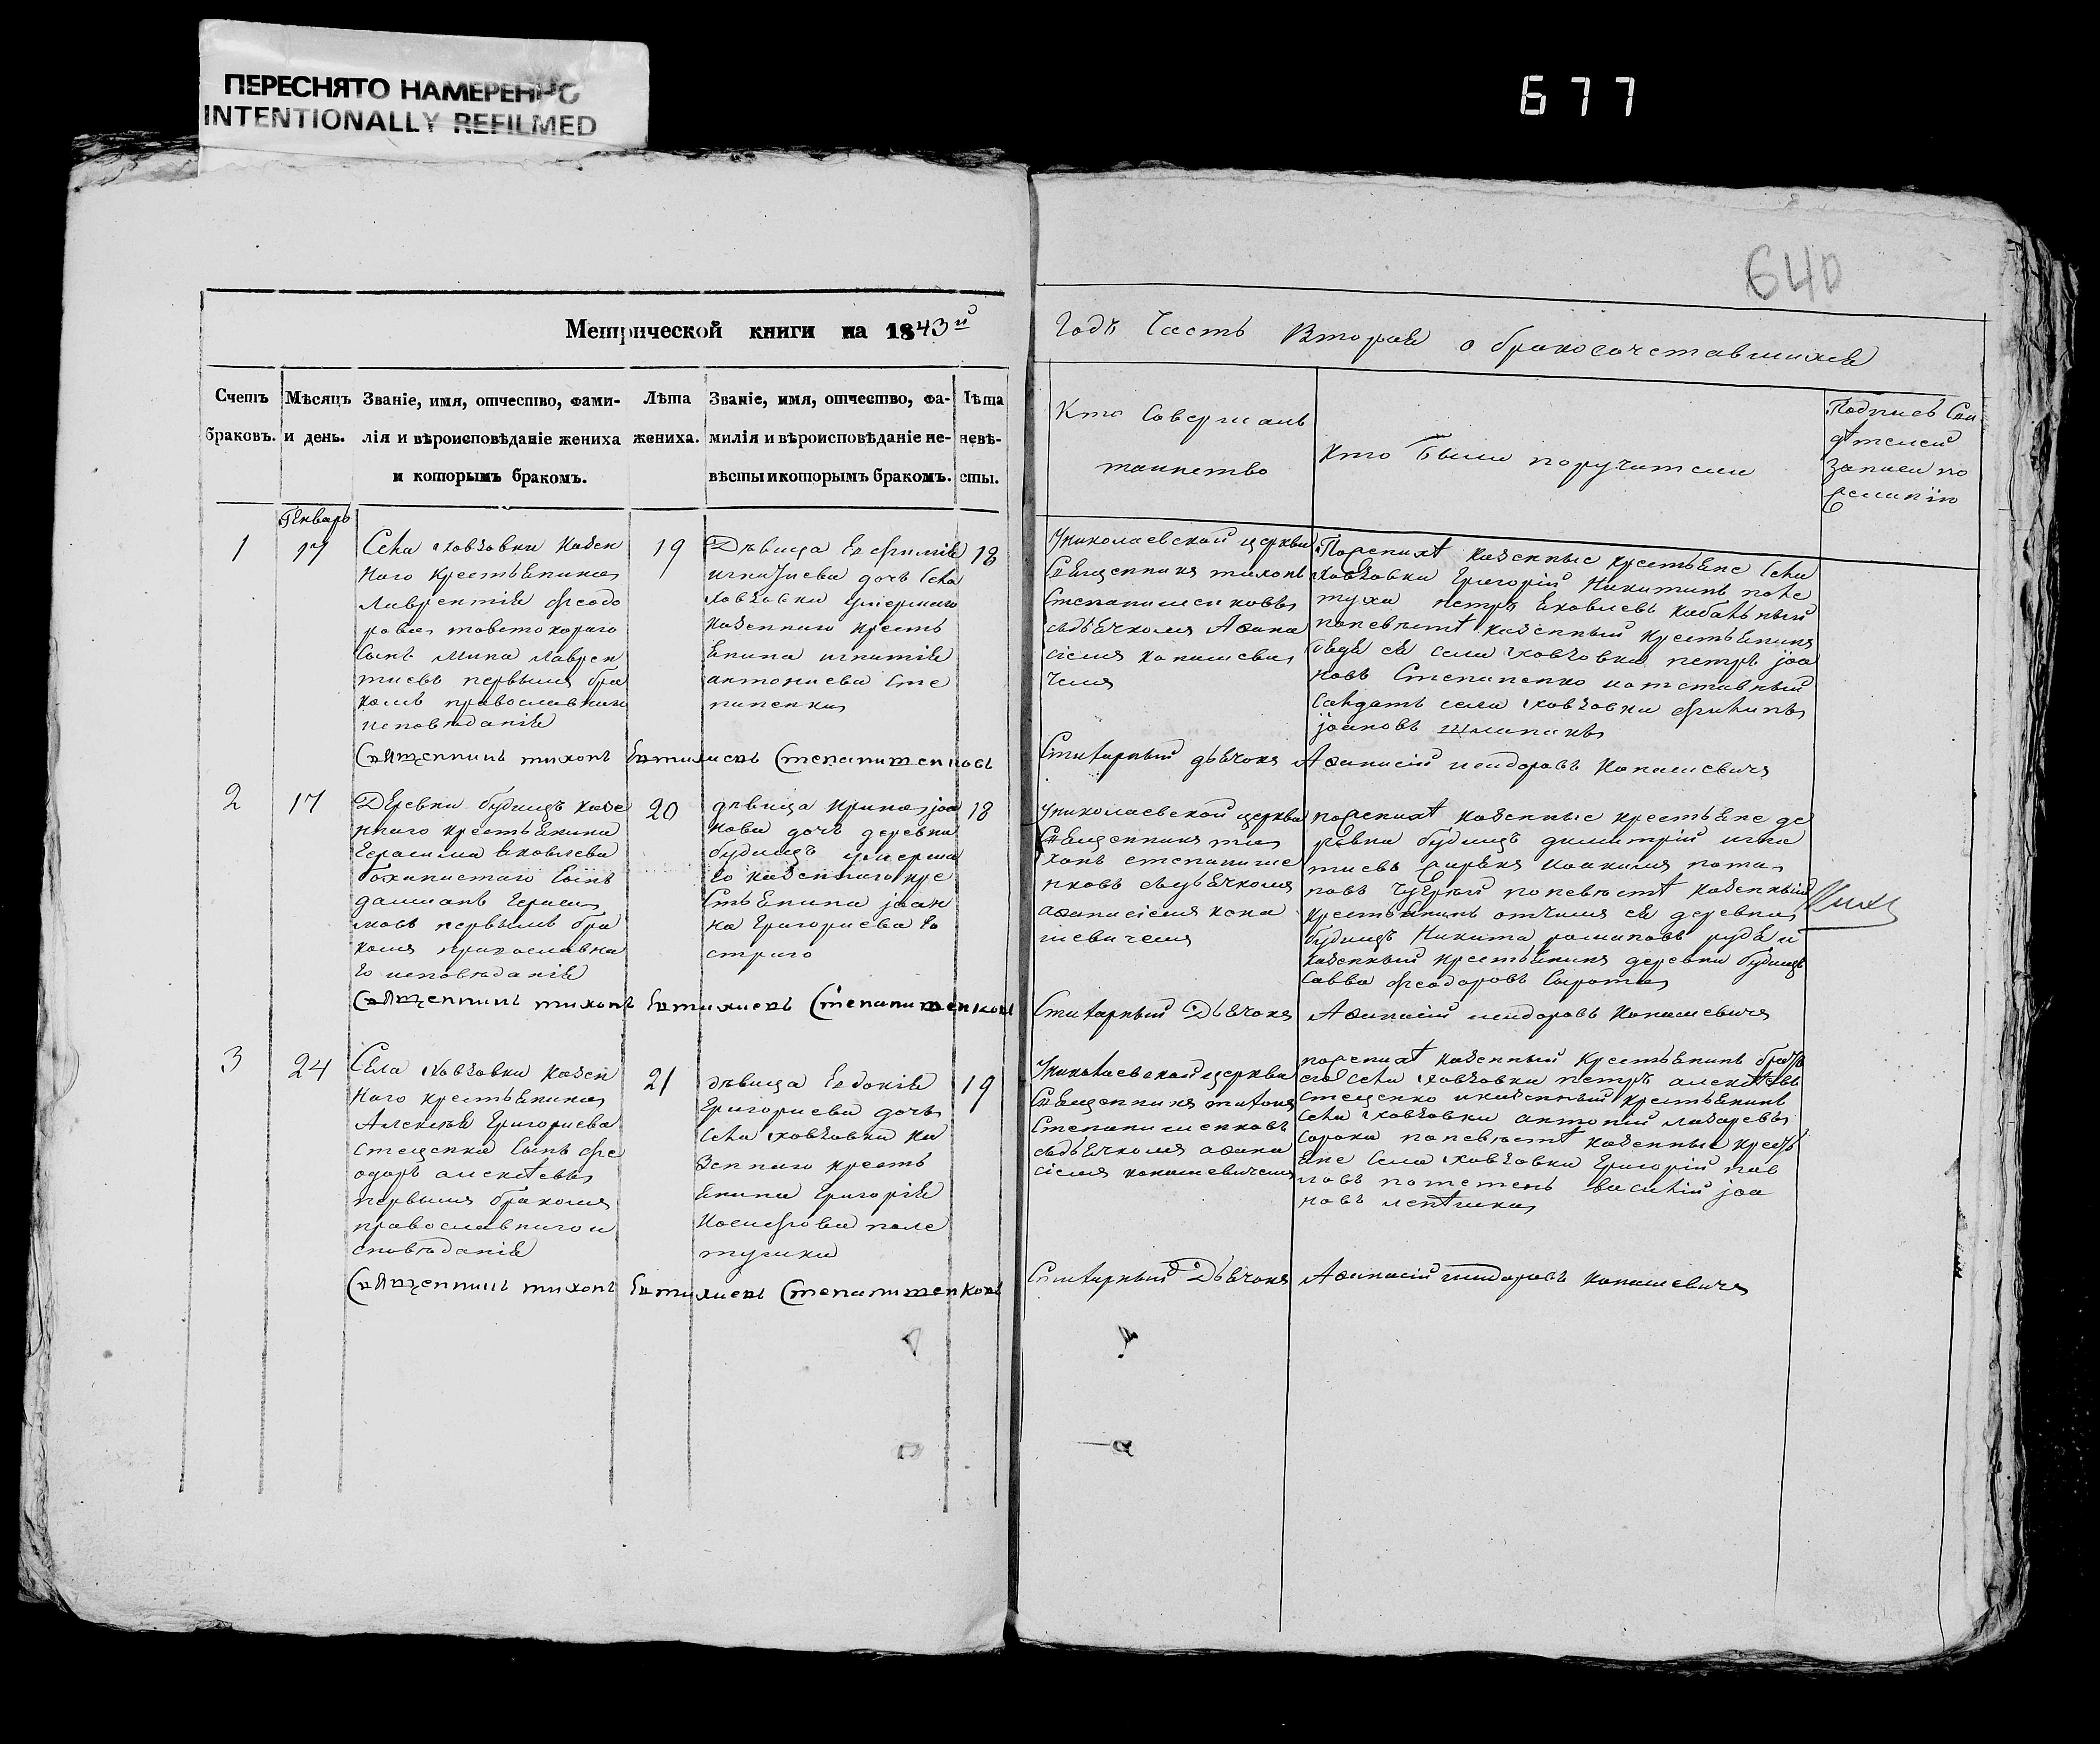 ПЕРЕСНЯТО НАМЕРЕННО
INTENTIONALLY REFILMED
677
640
Метрической книги на 1843й
Годъ Часть Вторая о бракосочетавшихся
Счетъ браковъ.
Мѣсяцъ и день.
Званіе, имя, отчество, фами-
лія и вѣроисповѣданіе жениха
и которымъ бракомъ.
Лѣта
жениха.
Званіе, имя, отчество, фа-
милія и вѣроисповѣданіе не-
вѣсты и которымъ бракомъ.
Лѣта
невѣ-
сты.
Кто Совершалъ
таинство
Кто Были поручители
Подпись Сви
дѣтелей
записи по
желанію
Январь
1
17
Села Ховзовки казен
наго крестьянина
Лаврентія Феодо
рова
сынъ Мина Лаврен
тиевъ первымъ бра
комъ православнаго
исповѣданія
19
Дѣвица Евфимія
игнатиева дочь села
Ховзовки умершаго
казеннаго кресть
янина игнатія
антониева Сте
паненка
18
Николаевской церкви
Священникъ тихонъ
Степанишенковъ
съ дьячкомъ Афана
сіемъ Копашеви
чемъ
По женихѣ казенные крестьяне села
Ховзовки Григорій Никитинъ поле
туха петръ Яковлевъ
по невѣстѣ казенный крестьянинъ
села Ховзовки петръ іоа
новъ Степаненко и отставный
солдатъ села Ховзовки Филипъ
іоановъ
Священникъ тихонъ Евтихиевъ Степанишенковъ
Стихарный дьячокъ Афанасій исидоровъ Копашевичъ
2
17
Деревни будищъ казе
ннаго крестьянина
Герасима Яковлева
сынъ
дамианъ Гераси
мовъ первымъ бра
комъ православна
го исповѣданія
20
дѣвица ирина іоа
нова дочь деревни
будищъ умерша
го казеннаго кре
стьянина іоан
на Григориева
18
Николаевской церкви
Священникъ ти
хонъ степанише
нковъ съ дьячкомъ
афанасіемъ копа
шевичемъ
по женихѣ казенные крестьяне де
ревни будищъ димитрій игна
тиевъ
по невѣстѣ казенный
крестьянинъ отчимъ ея деревни
будищъ Никита романовъ рудя и
казенный крестьянинъ деревни будищъ
Савва Феодоровъ Сирота
Священникъ тихонъ Евтихиевъ Степанишенковъ
Стихарный Дьячокъ Афанасій исидоровъ Копашевичъ
3
24
Села Ховзовки казен
наго крестьянина
Алексѣя Григориева
стеценка сынъ Фе
одоръ алексѣевъ
первымъ бракомъ
православнаго и
сповѣданія
21
дѣвица Евдокія
Григориева дочь
села Ховзовки ка
зеннаго кресть
янина Григорія
иосифова поле
тушки
19
Николаевской церкви
Священникъ тихонъ
Степанишенковъ
съ дьячкомъ афана
сіемъ копашевичемъ
по женихѣ казенный крестьянинъ братъ
его села Ховзовки петръ алексѣевъ
стеценко и казенный крестьянинъ
села Ховзовки антоній лазаревъ
сорока по невѣстѣ казенные кресть
яне села Ховзовки Григорій пав
ловъ василій іоа
новъ
Священникъ тихонъ Евтихиевъ Степанишенковъ
Стихарный Дьячокъ Афанасій исидоровъ копашевичъ